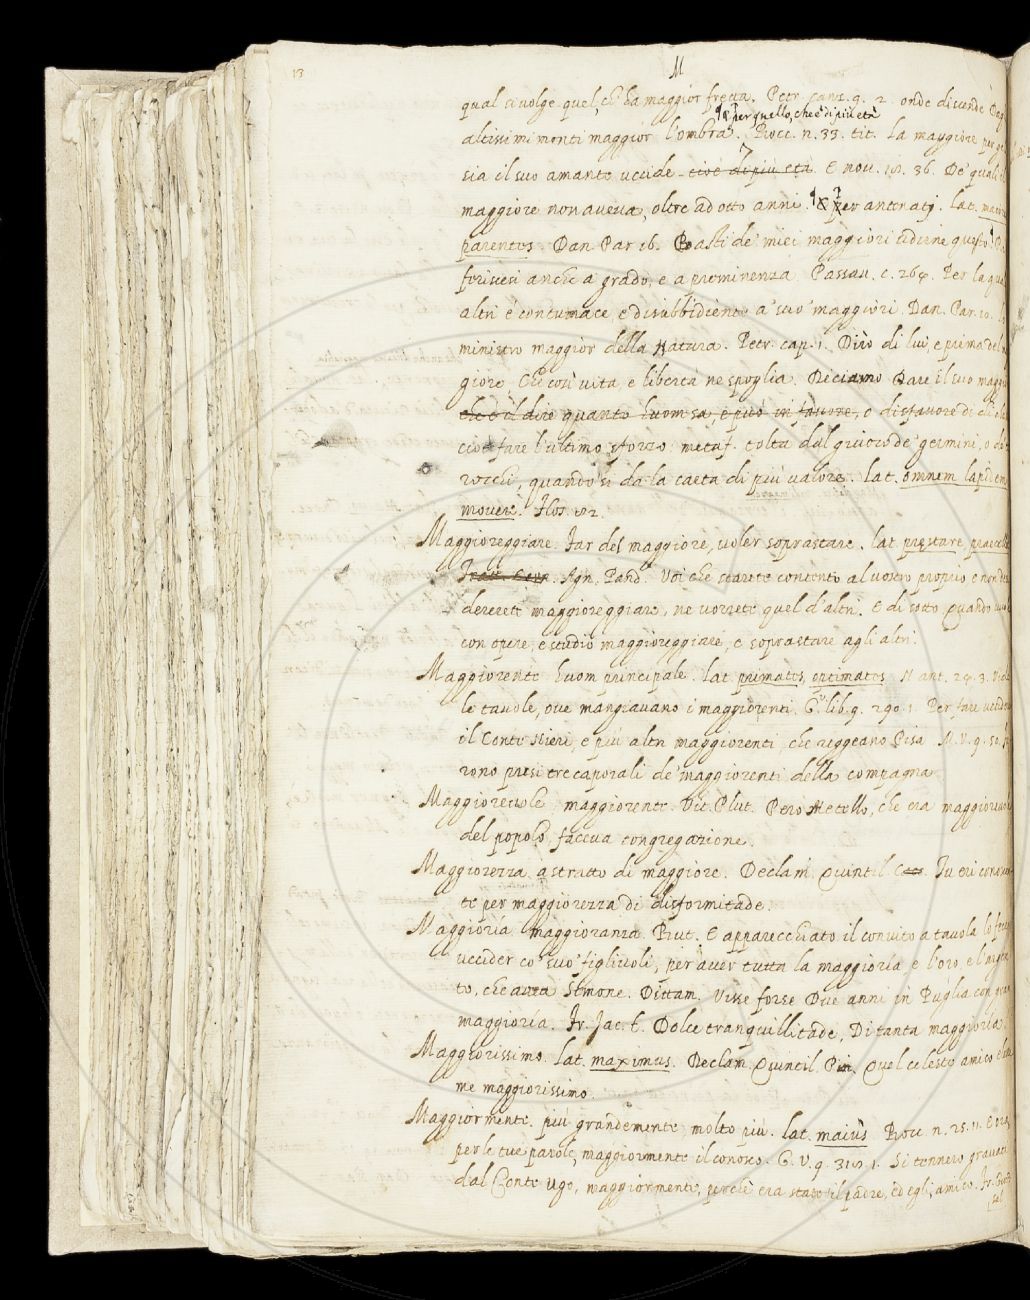 13
M
qual si volge quel, ch' ha maggior fretta. Petr. canz. 9. 2. onde discende Dagli
¶ & per quello, che è di più età
altissimi monti maggior l'ombra. Bocc. n. 33. tit. La maggiore per
sia il suo amante uccide cioè di più età. E nov. 18. 36. De' quali il
maggiore non aveva, oltre ad otto anni. ¶ & per antenati. lat. maiores
parentes. Dan. Par. 16. Basti de' miei maggiori udirne questo.
anche a grado, e a preminenza. Passau. c. 264. Per la qual
altri è contumace, e disubbidiente a' suo' maggiori. Dan. Par. 10. Lo
ministro maggior della Natura. Petr. cap. 1. Dirò di lui, e prima del
giore Che così vita, e libertà ne spoglia. Diciamo Dare il suo maggi
che è il dire quanto huom sa, e può in favore, e disfavore di
cioè fare l'ultimo sforzo. metaf. tolta dal giuoco de' germini, o de
rocchi, quando si dà la carta di più valore. lat. omnem lapidem
movere. Flos. 182.
Maggioreggiare. Far del maggiore, voler soprastare. lat. prestare
Agn. Pand. Voi che starete contento al vostro proprio e non
derereti maggioreggiare, ne vorrete quel d'altri. E di sotto Quando
con opere, e studio maggioreggiare, e soprastare agli altri.
Maggiorente huom principale. lat. primates, optimates. N. ant. 24. 3. Vide
le tavole, ove mangiavano i maggiorenti. G. V. lib. 9. 290. 1. Per fare uccidere
il Conte Nieri, e più altri maggiorenti, che reggeano Pisa. M. V. 9. 50.
rono presi tre caporali de' maggiorenti della compagna.
Maggiorevole maggiorente. Vit. Plut. Pero Metello, che era maggiorevole
del popolo, faceva congregazione.
Maggiorezza astratto di maggiore. Declam. Quintil. C. Tu eri conoscen
te per maggiorezza di disformitade.
Maggioría maggioranza. But. E apparecchiato il convito a tavola lo fece
uccider co' suo' figliuoli, per aver tutta la maggioría, e l'oro, e l'argen
to, che avea Simone. Dittam. Visse forse Due anni in Puglia con gran
maggioría. Fr. Jac. t. Dolce tranquillitade, Di tanta maggioría.
Maggiorissimo. lat. maximus. Declam. Quintil. P. Quel celesto amico
me maggiorissimo.
Maggiormente. più grandemente, molto più. lat. maius Bocc. n. 25. 11. E ora
per le tue parole, maggiormente il conosco. G. V. 9. 318. 1. Si tennero gravati
dal Conte Ugo, maggiormente, perchè era stato il padre, ed egli, amico. Fr. Giord.